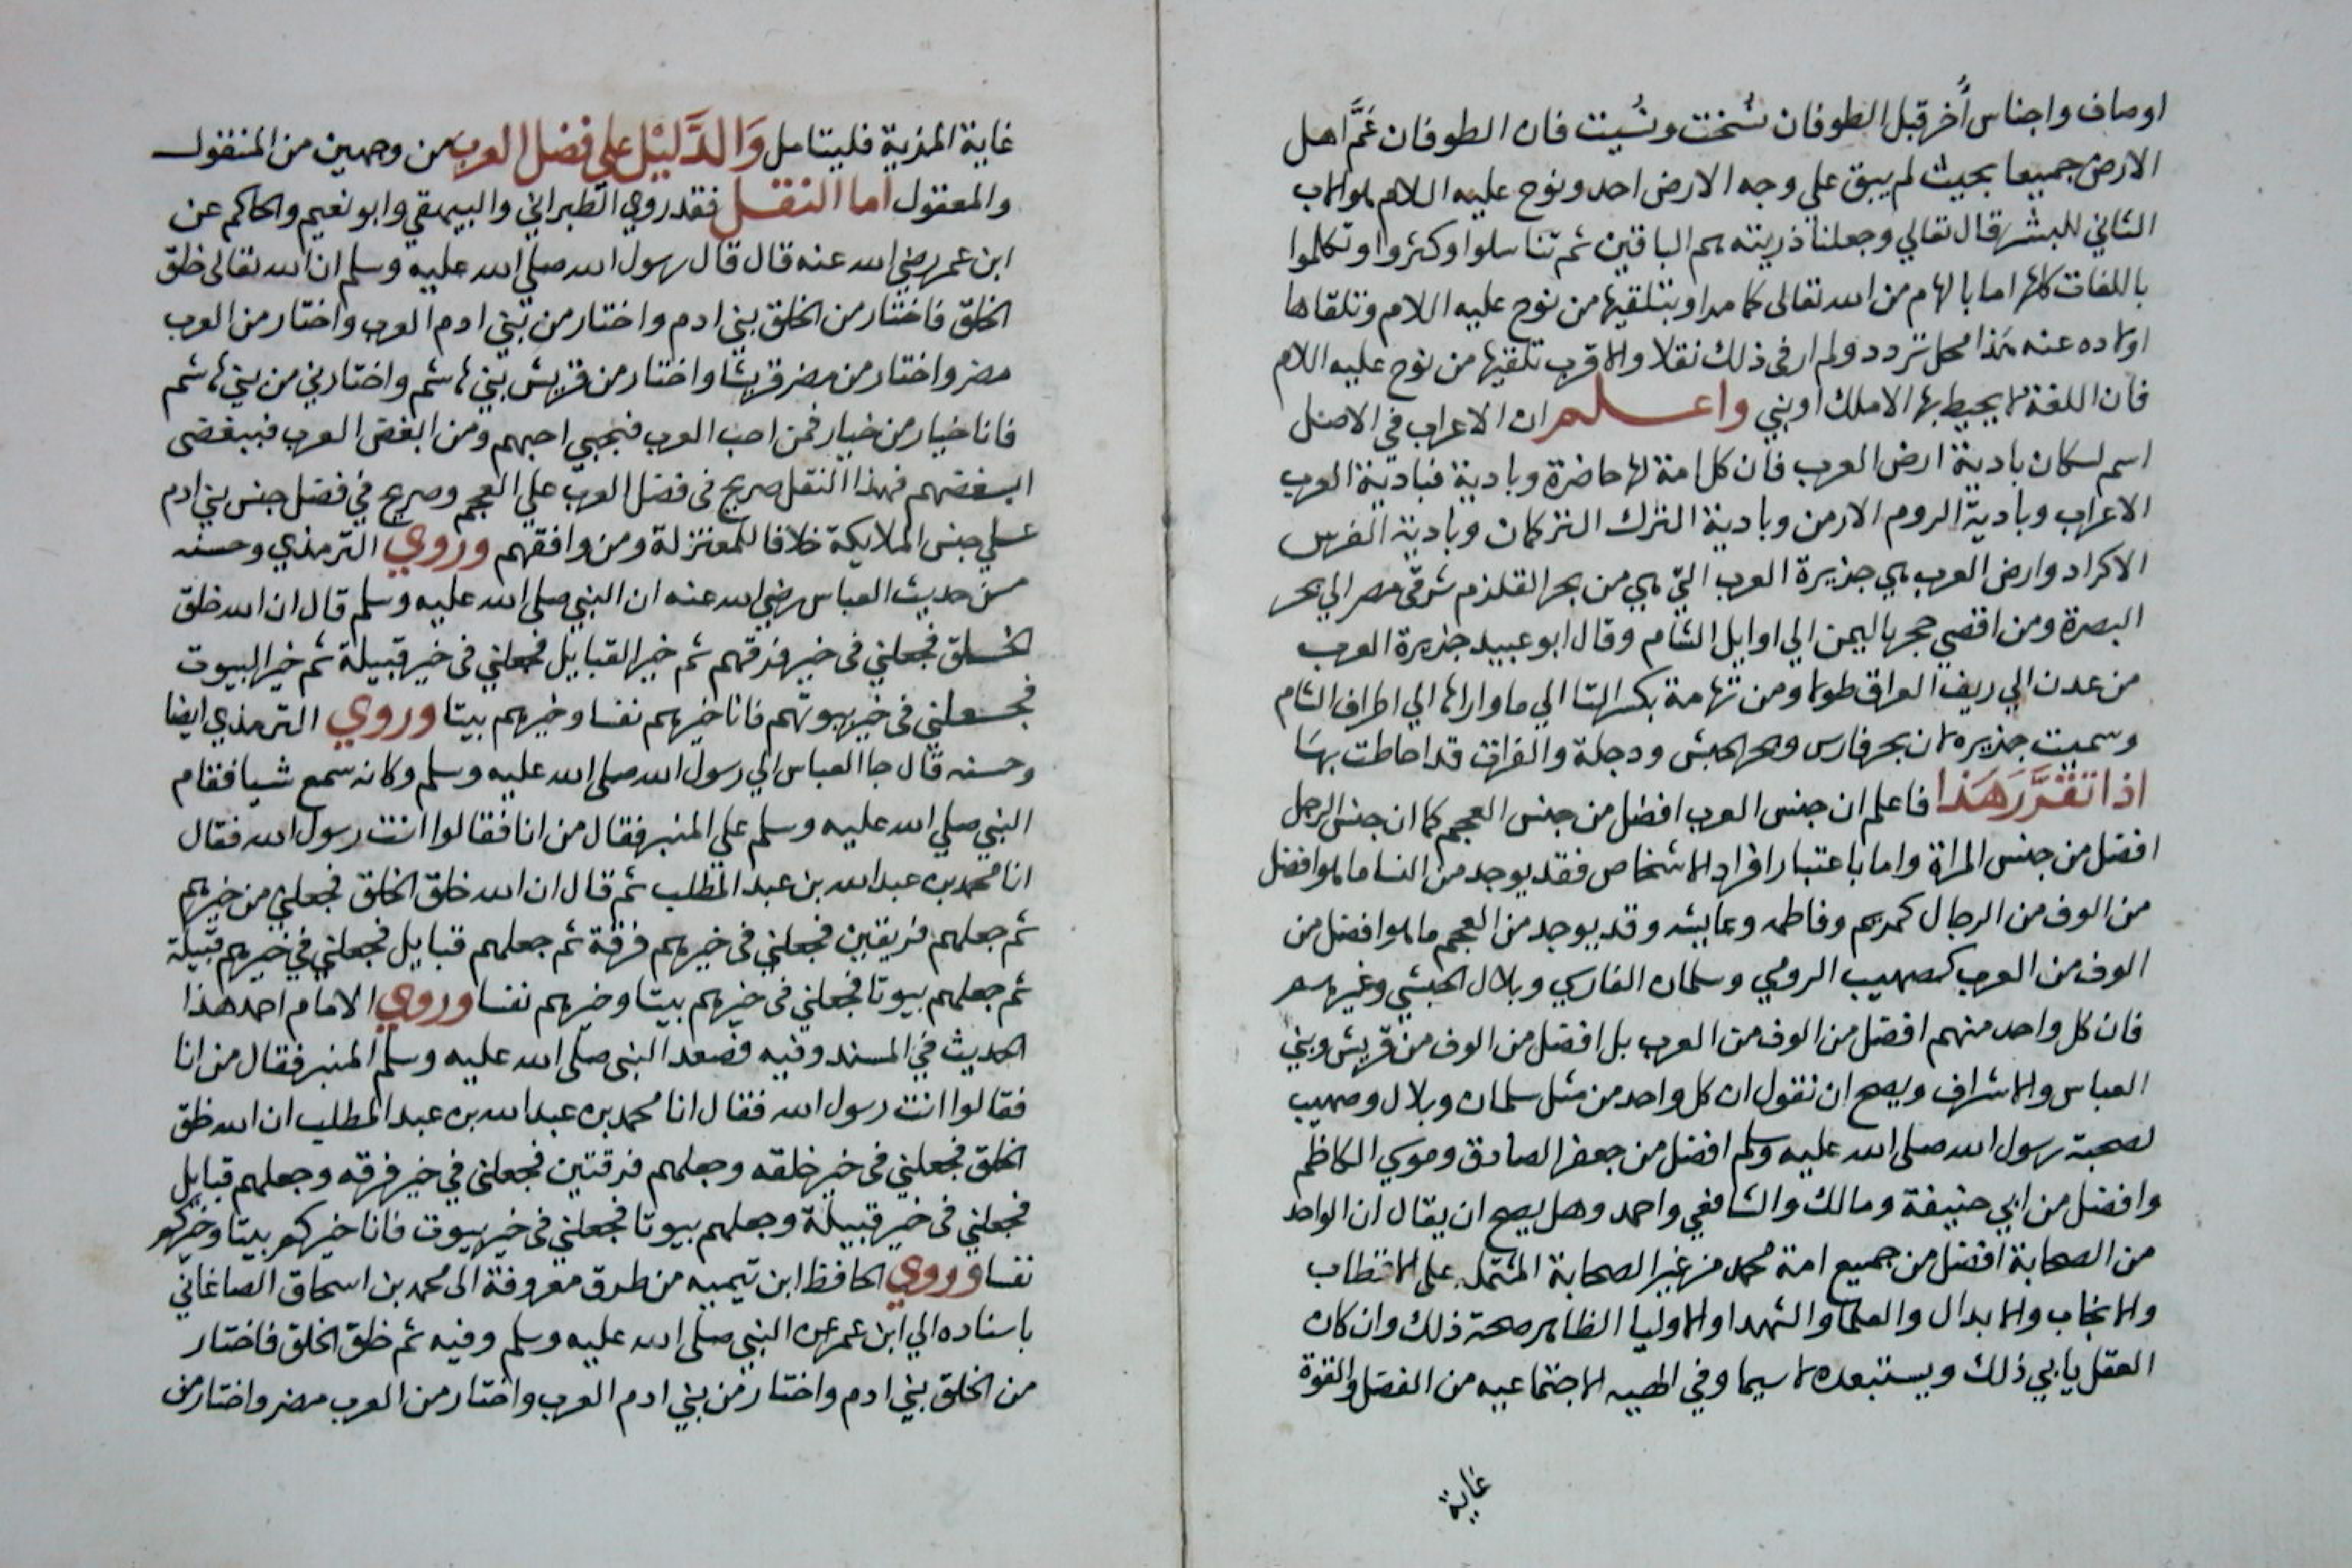 اوصاف واجناس أُخر قبل الطوفان نُسخت ونُسيت فان الطوفان عَمَّ اهل
الارض جميعا بحيث لم يبق علي وجه الارض احد ونوح عليه السلام هو الاب
الثاني للبشر قال تعالي وجعلنا ذريته هم الباقين ثم تناسلوا وكثروا وتكلموا
باللغات كلها اما بالهام من الله تعالى كما مر او بتلقيها من نوح عليه السلام وتلقاها
اولاده عنه هذا محل تردد ولم ار في ذلك نقلا والاقرب تلقيها من نوح عليه السلام
فان اللغة لا يحيط بها الا ملك او نبي واعلم ان الاعراب في الاصل
اسم لسكان بادية ارض العرب فان كل امة لها حاضرة وبادية فبادية العرب
الاعراب وبادية الروم الارمن وبادية الترك التركمان وبادية الفرس
الاكراد وارض العرب هي جزيرة العرب التي هي من بحر القلزم شرقي مصر الي بحر
البصرة ومن اقصي حجر باليمن الي اوايل الشام وقال ابو عبيد جزيرة العرب
من عدن الي ريف العراق طولا ومن تهامة بكسر التا الي ما وراها الي اطراف الشام
وسميت جزيره لان بحر فارس وبحر الحبش ودجلة والفرات قد احاطت بها
اذا تقَرَّرَ هَذا فاعلم ان جنس العرب افضل من جنس العجم كما ان جنس الرجل
افضل من جنس المراة واما باعتبار افراد الاشخاص فقد يوجد من النسا ما هو افضل
من الوف من الرجال كمريم وفاطمه وعايشه وقد يوجد من العجم ما هو افضل من
الوف من العرب كصهيب الرومي وسلمان الفارسي وبلال الحبشي وغيرهم
فان كل واحد منهم افضل من الوف من العرب بل افضل من الوف من قريش وبني
العباس والاشراف ويصح ان نقول ان كل واحد من مثل سلمان وبلال وصهيب
لصحبة رسول الله صلى الله عليه وسلم افضل من جعفر الصادق وموسي الكاظم
وافضل من ابي حنيفة ومالك والشافعي واحمد وهل يصح ان يقال ان الواحد
من الصحابة افضل من جميع امة محمد من غير الصحابة المشتمله على الاقطاب
والانجاب والابدال والعلما والشهدا والاوليا الظاهر صحة ذلك وان كان
العقل يابي ذلك ويستبعده لا سيما وفي الهيبه الاجتماعيه من الفضل والقوة
غاية
غاية المزية فليتامل وَالدَّليْل علي فضل العرب من وجهين من المنقول
والمعقول اما النقل فقد روي الطبراني والبيهقي وابو نعيم والحاكم عن
ابن عمر رضي الله عنه قال قال رسول الله صلي الله عليه وسلم ان الله تعالى خلق
الخلق فاختار من الخلق بني ادم واختار من بني ادم العرب واختار من العرب
مضر واختار من مضر قريشا واختار من قريش بني هاشم واختارني من بني هاشم
فانا خيار من خيار فمن احب العرب فبحبي احبهم ومن ابغض العرب فببغضى
ابغضهم فهذا النقل صريح فى فضل العرب علي العجم وصريح في فضل جنس بني ادم
علي جنس الملايكة خلافا للمعتزلة ومن وافقهم وروي الترمذي وحسنه
من حديث العباس رضي الله عنه ان النبي صلي الله عليه وسلم قال ان الله خلق
الخلق فجعلني فى خير فرقهم ثم خير القبايل فجعلني فى خير قبيلة ثم خير البيوت
فجعلني فى خير بيوتهم فانا خيرهم نفسا وخيرهم بيتا وروي الترمذي ايضا
وحسنه قال جا العباس الي رسول الله صلى الله عليه وسلم وكانه سمع شيا فقام
النبي صلي الله عليه وسلم علي المنبر فقال من انا فقالوا انت رسول الله فقال
انا محمد بن عبد الله بن عبد المطلب ثم قال ان الله خلق الخلق فجعلني من خيرهم
ثم جعلهم فريقين فجعلني فى خيرهم فرقة ثم جعلهم قبايل فجعلني في خيرهم قبيلة
ثم جعلهم بيوتا فجعلني فى خيرهم بيتا وخيرهم نفسا وروي الامام احمد هذا
الحديث في المسند وفيه فصعد النبي صلى الله عليه وسلم المنبر فقال من انا
فقالوا انت رسول الله فقال انا محمد بن عبد الله بن عبد المطلب ان الله خلق
الخلق فجعلني فى خير خلقه وجعلهم فرقتين فجعلني في خير فرقه وجعلهم قبايل
فجعلني فى خير قبيلة وجعلهم بيوتا فجعلني فى خير بيوت فانا خيركم بيتا وخيركم
نفسا وروي الحافظ ابن تيميه من طرق معروفة الى محمد بن اسحاق الصاغاني
باسناده الي ابن عمر عن النبي صلى الله عليه وسلم وفيه ثم خلق الخلق فاختار
من الخلق بني ادم واختار من بني ادم العرب واختار من العرب مضر واختار من